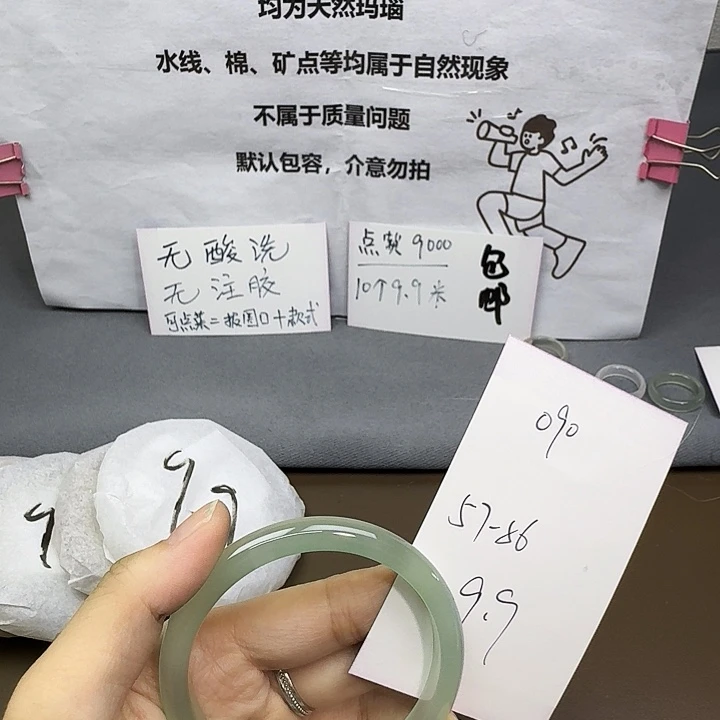 均为天然玛瑙
水线、棉、矿点等均属于自然现象
不属于质量问题
默认包容，介意勿拍
无酸洗
无注胶
可点菜=报圈口+款式
点赞9000
10个9.9米
包邮
090
57-86
9.9
9
99